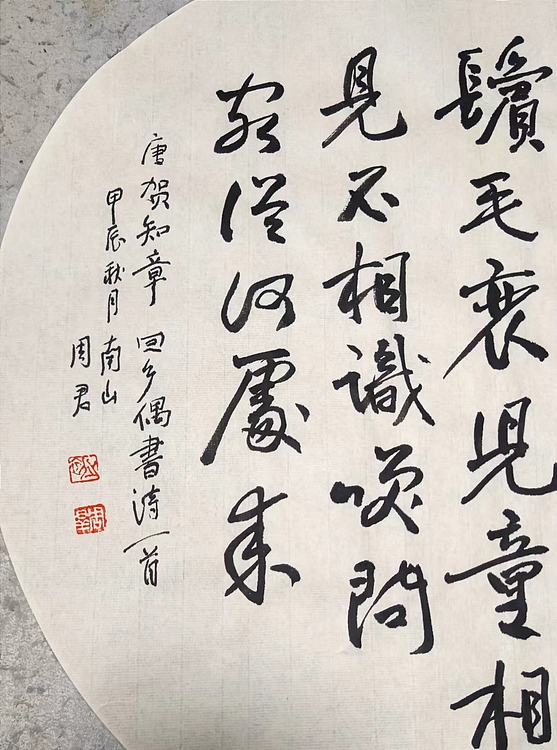 鬢毛衰兒童相
見不相識唉問
客從何處来
唐賀知章回乡偶書诗一首
甲辰秋月南山
周君